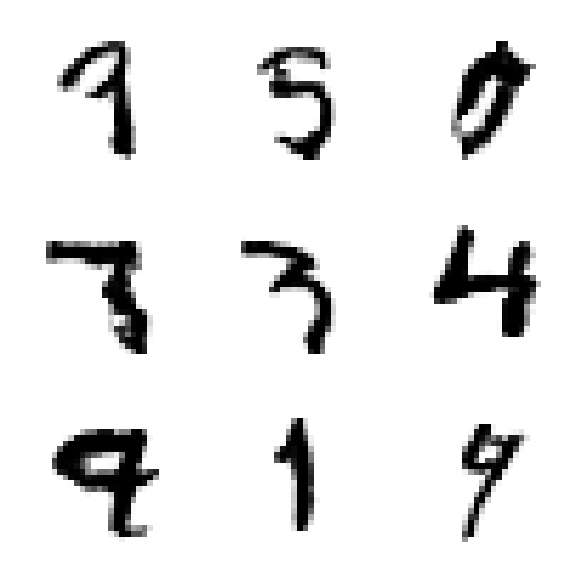 9 5 0
3 3 4
9 1 9